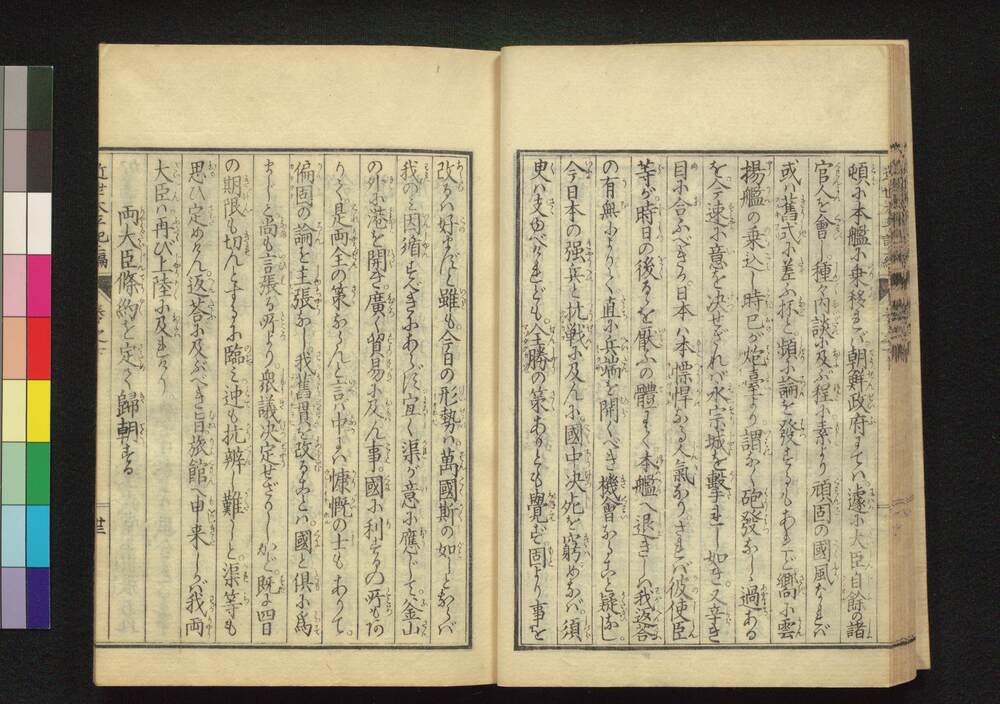 頓に本艦に乗移まで朝鮮政府にては遽に大臣自餘の諸
官人を會し種々内談に及ぶ程に素より頑固の國風なれバ
或ハ舊式に差ふ抔と頻に論を發するもあれど嚮に雲
揚艦の乗込し時己が炮臺より謂なく砲發なし過ある
を今速に意を决せざれバ永宗城を撃れし如き又辛き
目に合ふべきか日本ハ本慓悍なる人氣なりされバ彼使臣
等が時日の後るゝを厭ふの體にて本艦へ退きしハ我返答
の有無によりて直に兵端を開くべき機會なること疑なし
今日本の强兵と抗戦に及んに國中决死を窮めなバ須
臾ハ支ゆべけれども全勝の策ありとも覺ず固より事を
改るハ好まずと雖も今日の形勢ハ萬國斯の如しとならバ
我のミ因循すべきにあらず宜く渠が意に應じて釜山
の外に港を開き廣く貿易に及ん事國に利するの所もあり
りて是両全の策ならんと言ハ中にハ慷慨の士もありて
偏固の論を主張なし我舊貫を改ることハ國と俱に爲
まじと尚も言張る所より衆議决定せざりしかど既に四日
の期限も切んとするに臨ミ迚も抗辨し難しと渠等も
思ひ定めけん返答に及ぶべき旨旅館へ申来しかバ我両
大臣ハ再び上陸に及れけり
両大臣條約を定て歸朝する
近世太平記 編 卷之
廿三